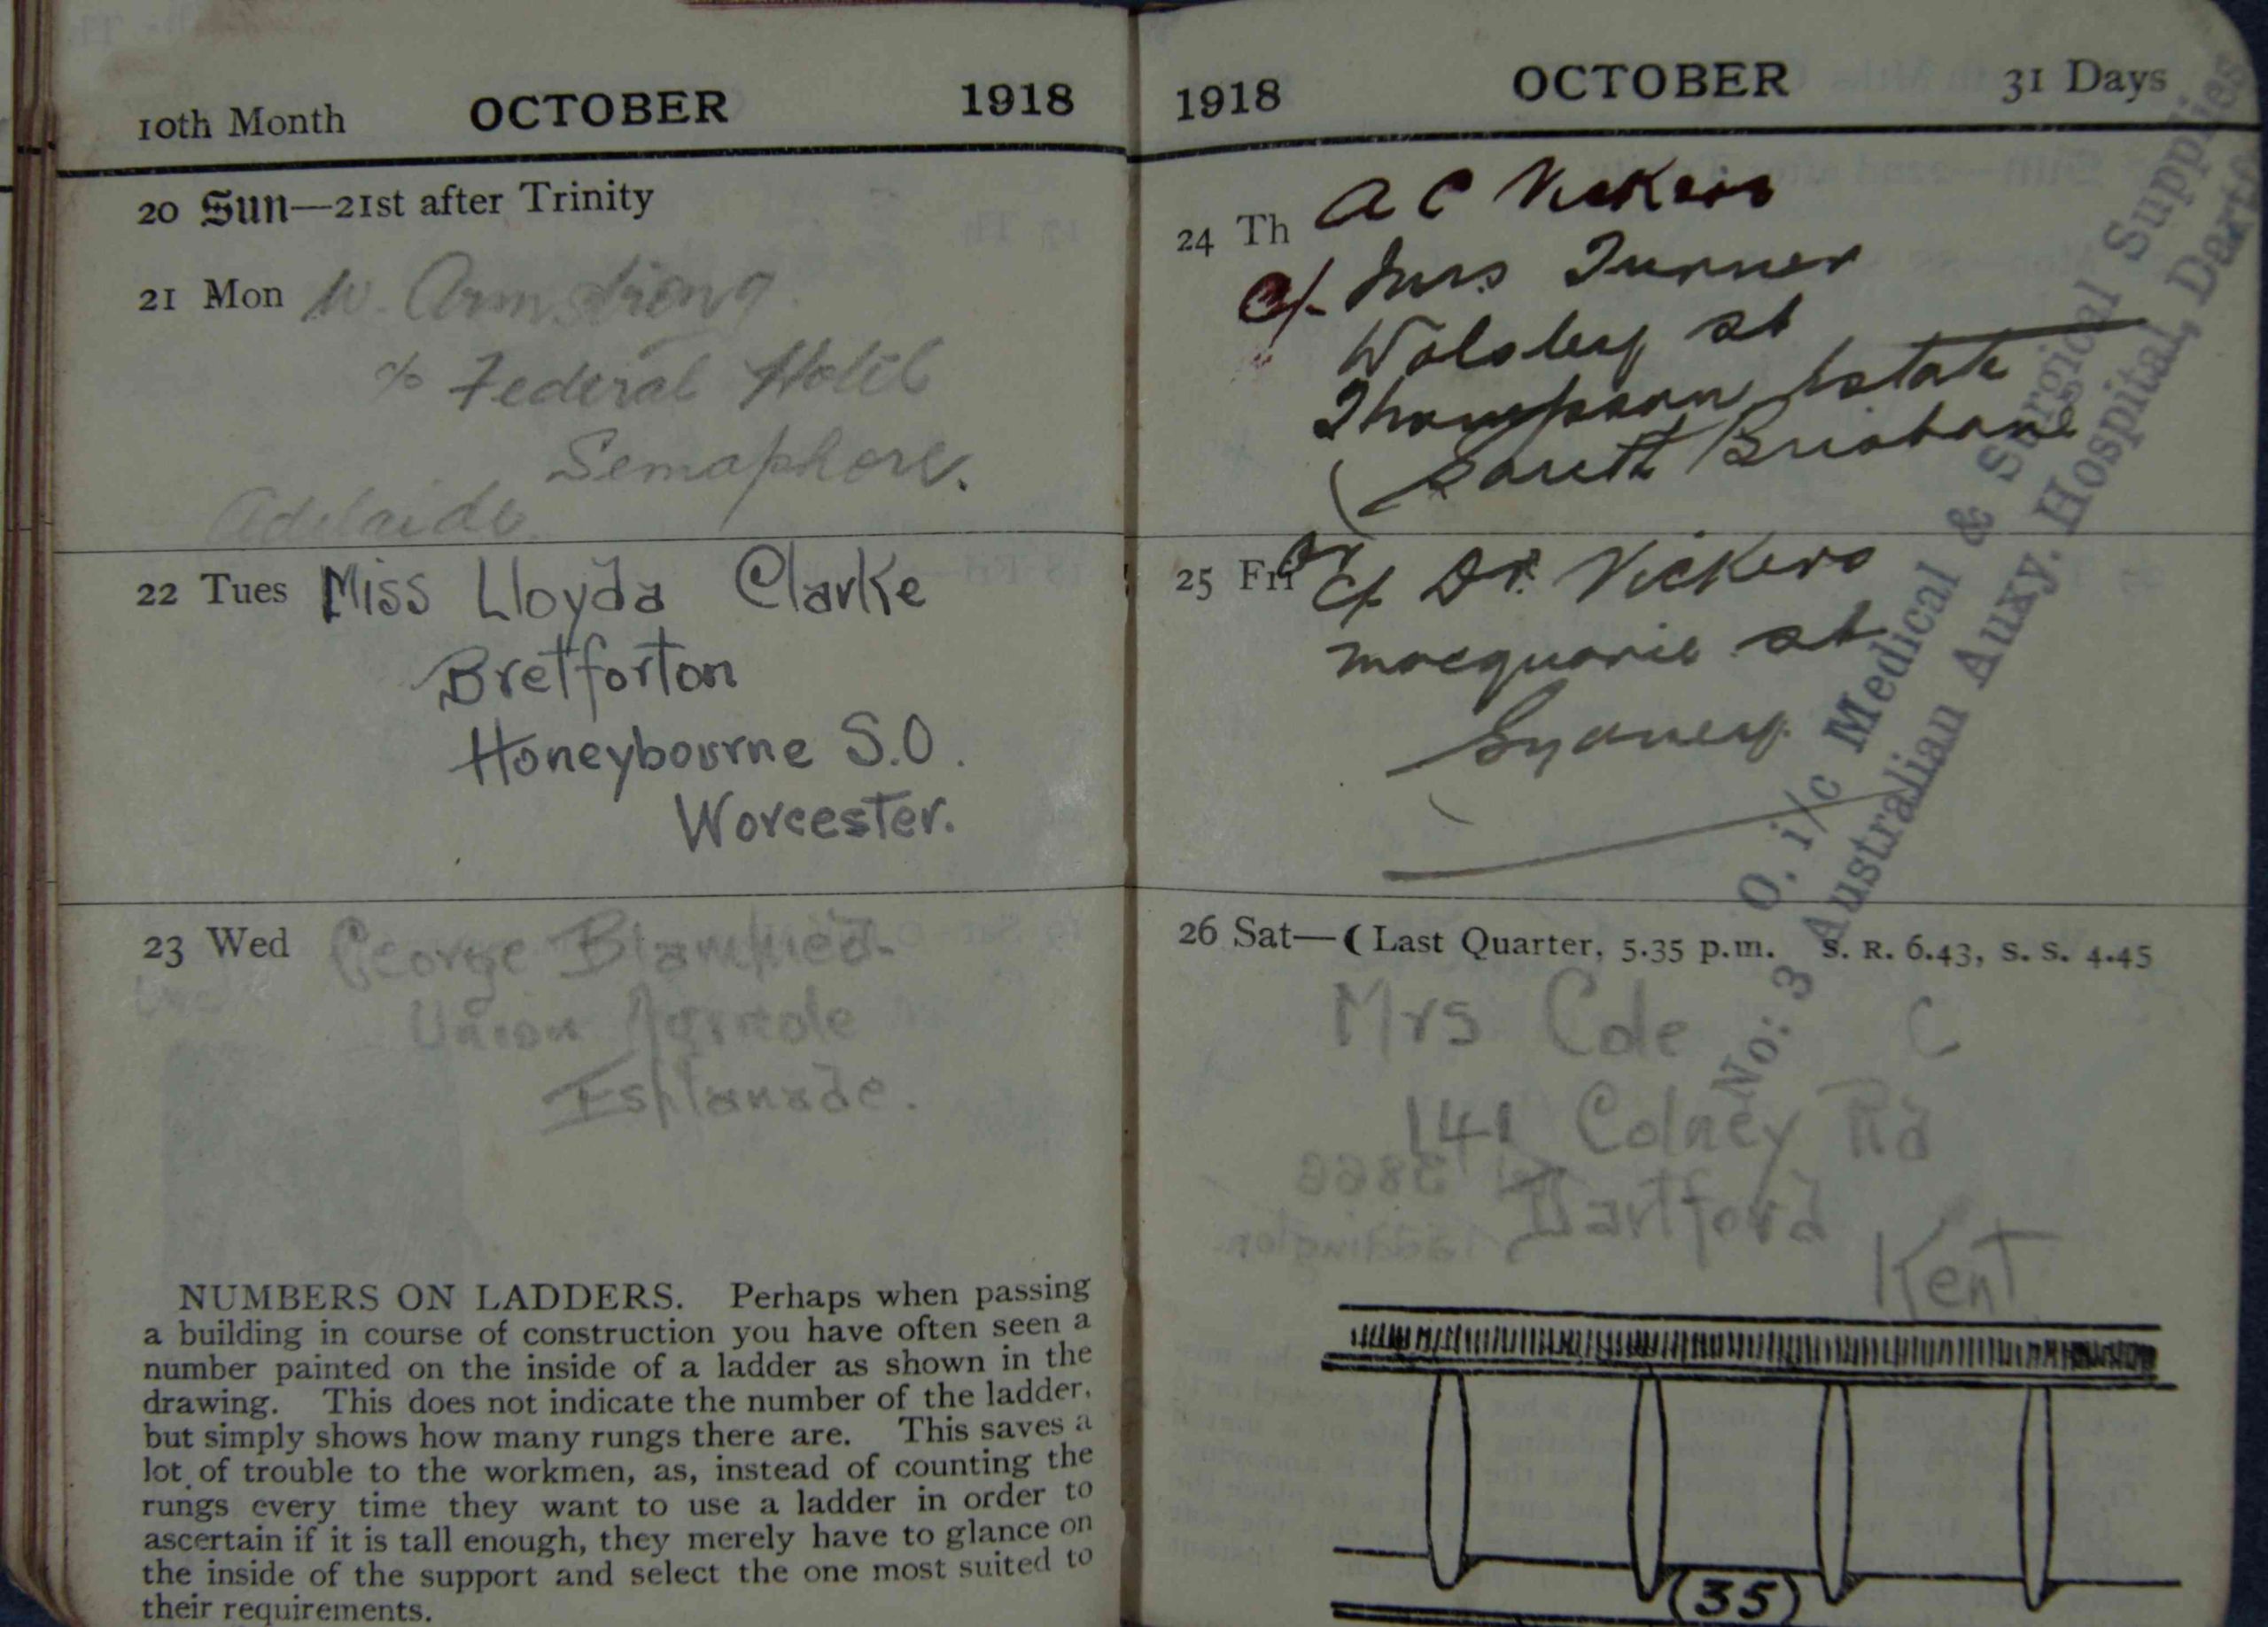 10th Month OCTOBER 1918
20 Sun—21st after Trinity
21 Mon W. Armstrong
c/o Federal Hotel
Semaphore.
Adelaide.
22 Tues Miss Lloyda Clarke
Bretforton
Honeybourne S.O.
Worcester.
23 Wed George
Union Agricole
Esplanade.
NUMBERS ON LADDERS. Perhaps when passing
a building in course of construction you have often seen a
number painted on the inside of a ladder as shown in the
drawing. This does not indicate the number of the ladder,
but simply shows how many rungs there are. This saves a
lot of trouble to the workmen, as, instead of counting the
rungs every time they want to use a ladder in order to
ascertain if it is tall enough, they merely have to glance on
the inside of the support and select the one most suited to
their requirements.
1918 OCTOBER 31 Days
24 Th A C Vickers
C/- Mrs Turner
Wolsley st
Thompson Estate
South Brisbane
25 Fri or C/- Dr. Vickers
Macquarie st
Sydney.
26 Sat—( Last Quarter, 5.35 p.m. S. R. 6.43, S. S. 4.45
Mrs Cole C
141 Colney Rd
Dartford
Kent
(35)
O. i/c Medical & Surgical Supplies
No: 3 Australian Auxy. Hospital, Dartfo